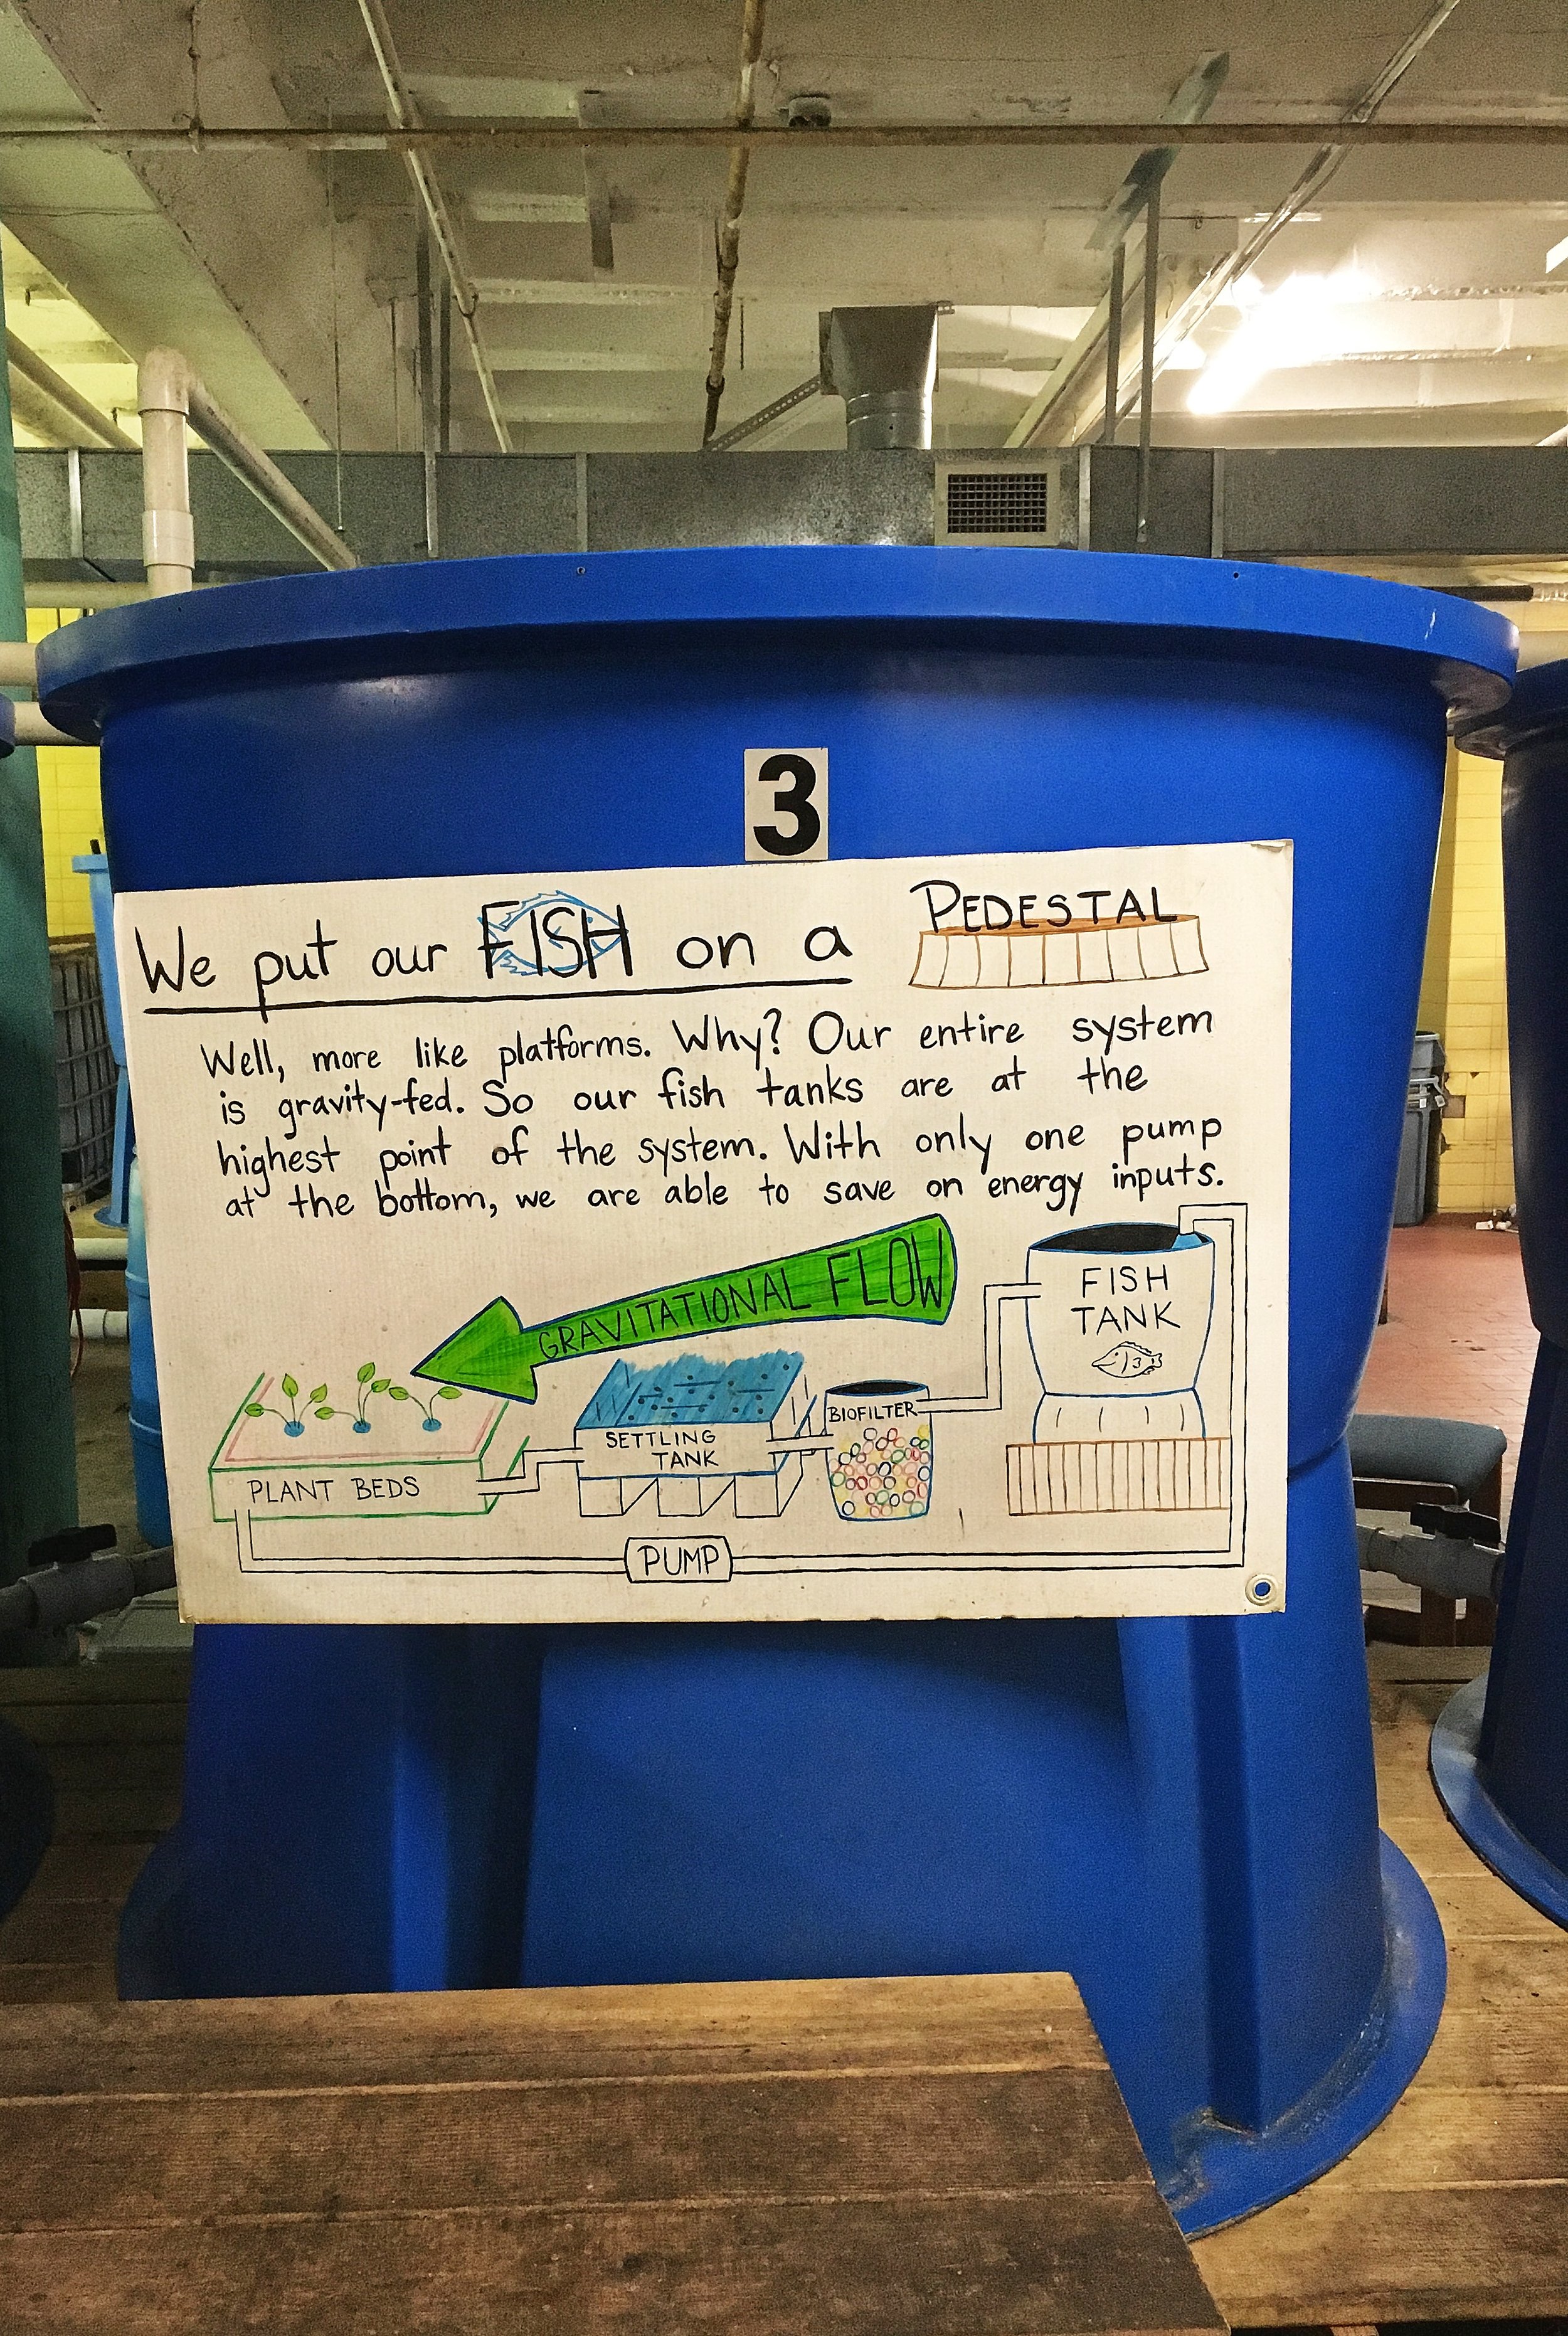 3
We put our FISH on a PEDESTAL
Well, more like platforms. Why? Our entire system
is gravity-fed. So our fish tanks are at the
highest point of the system. With only one pump
at the bottom, we are able to save on energy inputs.
GRAVITATIONAL FLOW
FISH
TANK
3
BIOFILTER
SETTLING
TANK
PLANT BEDS
PUMP